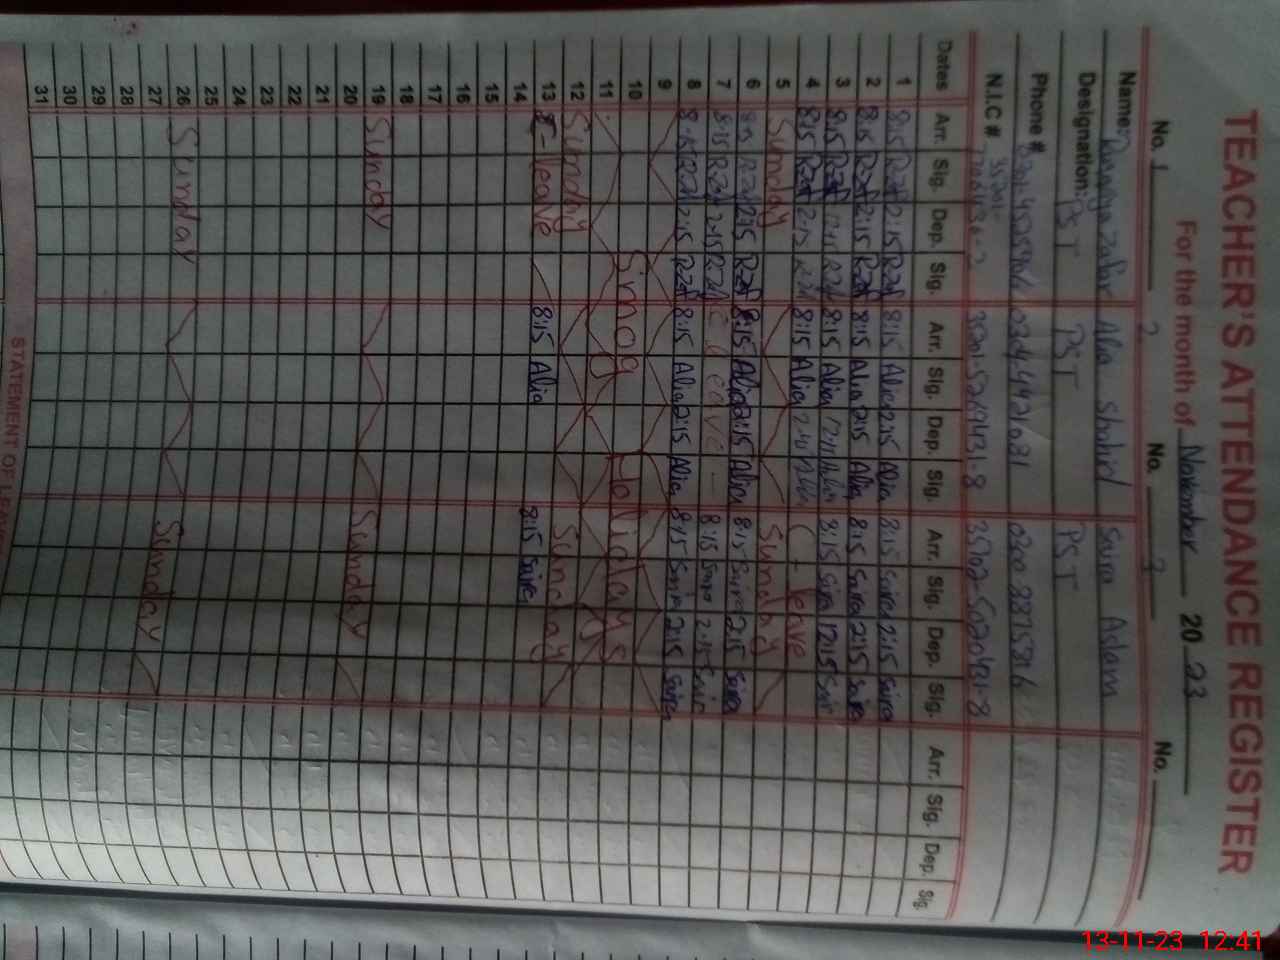 TEACHER'S ATTENDANCE REGISTER
For the month of November 2023
No. 1 2 No. 3 No.
Name: Zafar Alia Shahid Saira Aslam
Designation: PST PST PST
Phone # 0324-4421031 0300 8875316
N.I.C # 35202-5020431-8
Dates Arr. Sig. Dep. Sig. Arr. Sig. Dep. Sig. Arr. Sig. Dep. Sig. Arr. Sig. Dep. Sig.
1 8:15 2:15 8:15 Alia 2:15 Alia 8:15 Saira 2:15 Saira
2 8:15 2:15 8:15 Alia 2:15 Alia 8:15 Saira 2:15 Saira
3 8:15 12:15 8:15 Alia 8:15 Saira 12:15 Sair
4 8:15 2:15 8:15 Alia C - leave
5 Sunday Sunday
6 8:15 2:15 8:15 Alia 2:15 Alia 8:15 Saira 2:15 Saira
7 8:15 2:15 C leave 8:15 Saira 2:15 Sair
8 8:15 2:15 8:15 Alia 2:15 Alia 8:15 Saira 2:15 Saira
9
10 Smog Holidays
11
12 Sunday Sunday
13 leave 8:15 Alia 8:15 Saira
14
15
16
17
18
19 Sunday Sunday
20
21
22
23
24
25
26 Sunday Sunday
27
28
29
30
31
STATEMENT OF LEAVE
13-11-23 12:41